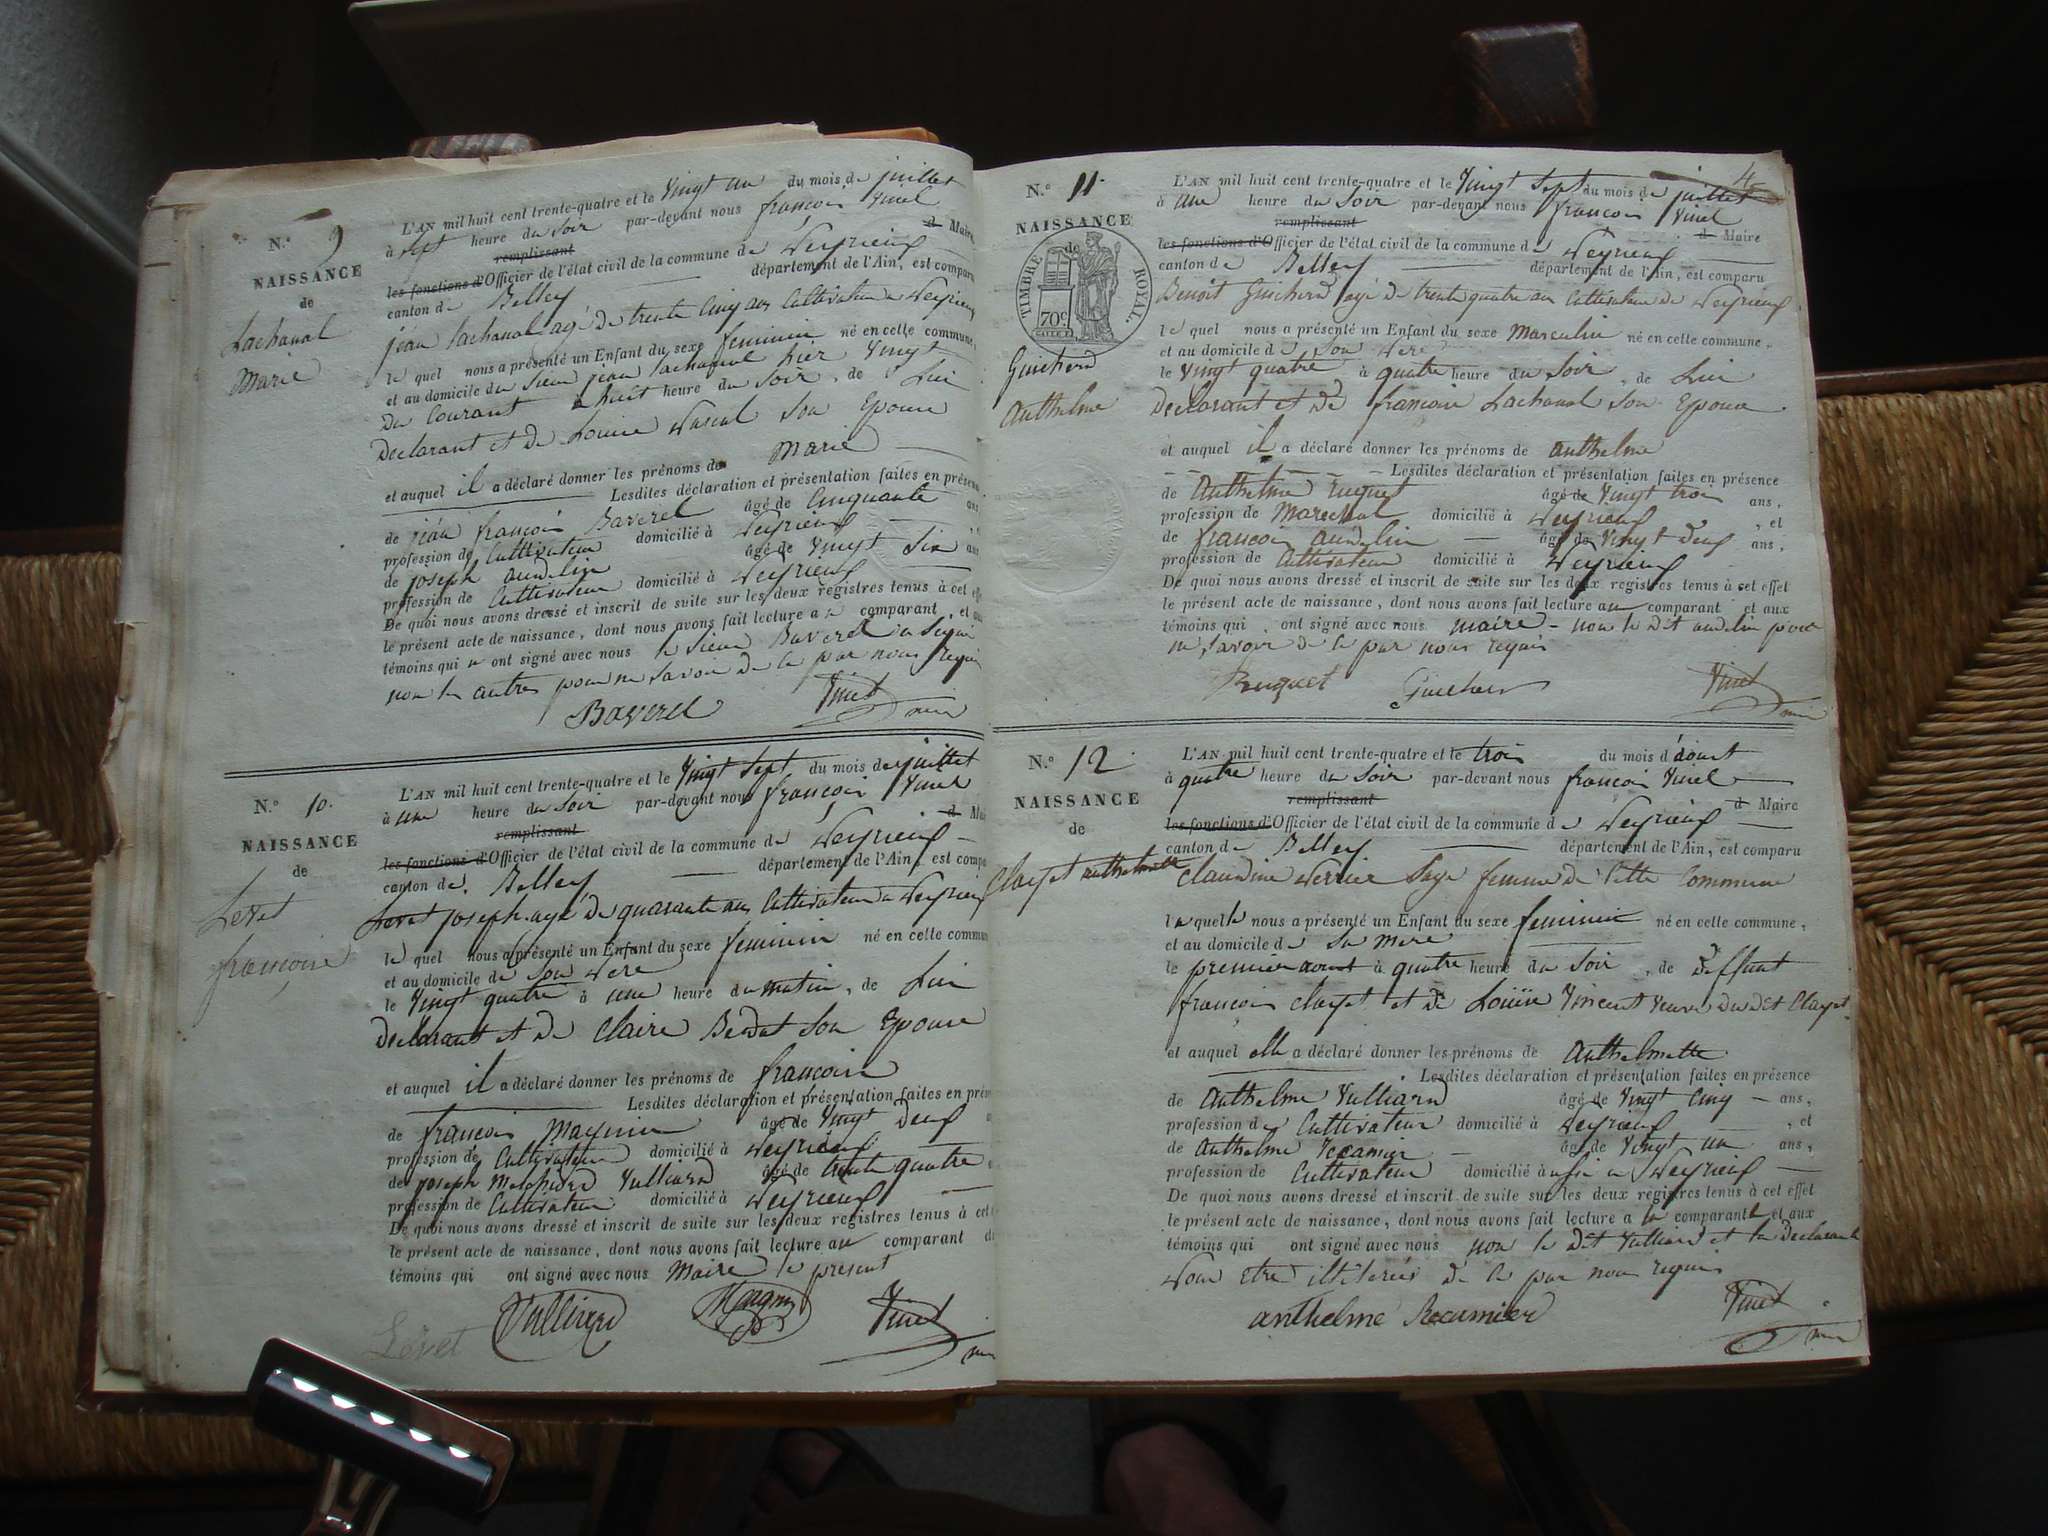 N.º 9
NAISSANCE
de
Lachanal
Marie
L'AN mil huit cent trente-quatre et le Vingt un du mois de juillet
à sept heure du Soir par-devant nous françois Vinel
remplissant d Maire
les fonctions d'Officier de l'état civil de la commune de Peyrieux
canton de Belley département de l'Ain, est comparu
jean Lachanal agé de trente Cinq ans Cultivateur a Peyrieux
le quel nous a présenté un Enfant du sexe feminin né en cette commune,
et au domicile du Sieur jean Lachanal hier Vingt
du Courant a huit heure du Soir, de Lui
Declarant et de Louise Pascal Son Epouse
et auquel il a déclaré donner les prénoms de Marie
Lesdites déclaration et présentation faites en présence
de jean françois Baverel âgé de Cinquante ans
profession de Cultivateur domicilié à Peyrieux
de joseph audelin âgé de Vingt Six ans
profession de Cultivateur domicilié à Peyrieux
De quoi nous avons dressé et inscrit de suite sur les deux registres tenus à cet effet
le présent acte de naissance, dont nous avons fait lecture au comparant, et aux
témoins qui ont signé avec nous le Sieur Baverel a Signé
non les autres pour ne Savoir de ce par nous requis
Baverel Vinel maire
N.º 10.
NAISSANCE
de
Levet
françoise
L'AN mil huit cent trente-quatre et le Vingt Sept du mois de juillet
à une heure du Soir par-devant nous françois Vinel
remplissant d Maire
les fonctions d'Officier de l'état civil de la commune de Peyrieux
canton de Belley département de l'Ain, est comparu
Levet joseph agé de quarante ans Cultivateur a Peyrieux
le quel nous a présenté un Enfant du sexe feminin né en cette commune
et au domicile de Son Pere
le Vingt quatre à une heure du matin, de Lui
declarant et de Claire Son Epouse
et auquel il a déclaré donner les prénoms de françoise
Lesdites déclaration et présentation faites en présence
de françois Magnin âgé de Vingt Deux
profession de Cultivateur domicilié à Peyrieux
de joseph Vulliard âgé de trente quatre
profession de Cultivateur domicilié à Peyrieux
De quoi nous avons dressé et inscrit de suite sur les deux registres tenus à cet
le présent acte de naissance, dont nous avons fait lecture au comparant
témoins qui ont signé avec nous Maire le present
Levet Vulliard Magnin Vinel maire
4
N.º 11.
NAISSANCE
de
TIMBRE ROYAL.
70c
Guicherd
Anthelme
L'AN mil huit cent trente-quatre et le Vingt Sept du mois de juillet
à une heure du Soir par-devant nous françois Vinel
remplissant d Maire
les fonctions d'Officier de l'état civil de la commune de Peyrieux
canton de Belley département de l'Ain, est comparu
Benoit Guicherd agé de trente quatre ans Cultivateur de Peyrieux
le quel nous a présenté un Enfant du sexe Masculin né en cette commune,
et au domicile de Son Pere
le Vingt quatre à quatre heure du Soir, de Lui
Declarant et de françoise Lachanal Son Epouse
et auquel il a déclaré donner les prénoms de Anthelme
Lesdites déclaration et présentation faites en présence
de Anthelme ruquet âgé de Vingt trois ans,
profession de Marechal domicilié à Peyrieux, et
de francois audelin âgé de Vingt Deux ans,
profession de Cultivateur domicilié à Peyrieux
De quoi nous avons dressé et inscrit de suite sur les deux registres tenus à cet effet
le présent acte de naissance, dont nous avons fait lecture au comparant et aux
témoins qui ont signé avec nous maire - non le dit audelin pour
ne Savoir de ce par nous requis
Ruquet Guicherd Vinel maire
N.º 12
NAISSANCE
de
Clayet anthelmette
L'AN mil huit cent trente-quatre et le trois du mois d'aoust
à quatre heure du Soir par-devant nous françois Vinel
remplissant d Maire
les fonctions d'Officier de l'état civil de la commune de Peyrieux
canton de Belley département de l'Ain, est comparu
Claudine Perrier Sage femme de Cette Commune
la quelle nous a présenté un Enfant du sexe feminin né en cette commune,
et au domicile de Sa mere
le premier aoust à quatre heure du Soir, de Deffunt
françois Clayet et de Louise Vincent Veuve Du Dit Clayet
et auquel elle a déclaré donner les prénoms de Anthelmette
Lesdites déclaration et présentation faites en présence
de Anthelme Vulliard âgé de Vingt Cinq ans,
profession de Cultivateur domicilié à Peyrieux, et
de Anthelme recamier âgé de Vingt un ans,
profession de Cultivateur domicilié à aussi a Peyrieux
De quoi nous avons dressé et inscrit de suite sur les deux registres tenus à cet effet
le présent acte de naissance, dont nous avons fait lecture a la comparante et aux
témoins qui ont signé avec nous non le dit Vulliard et la Declarante
Pour etre illiterés de ce par nous requis
anthelme Recamier Vinel maire